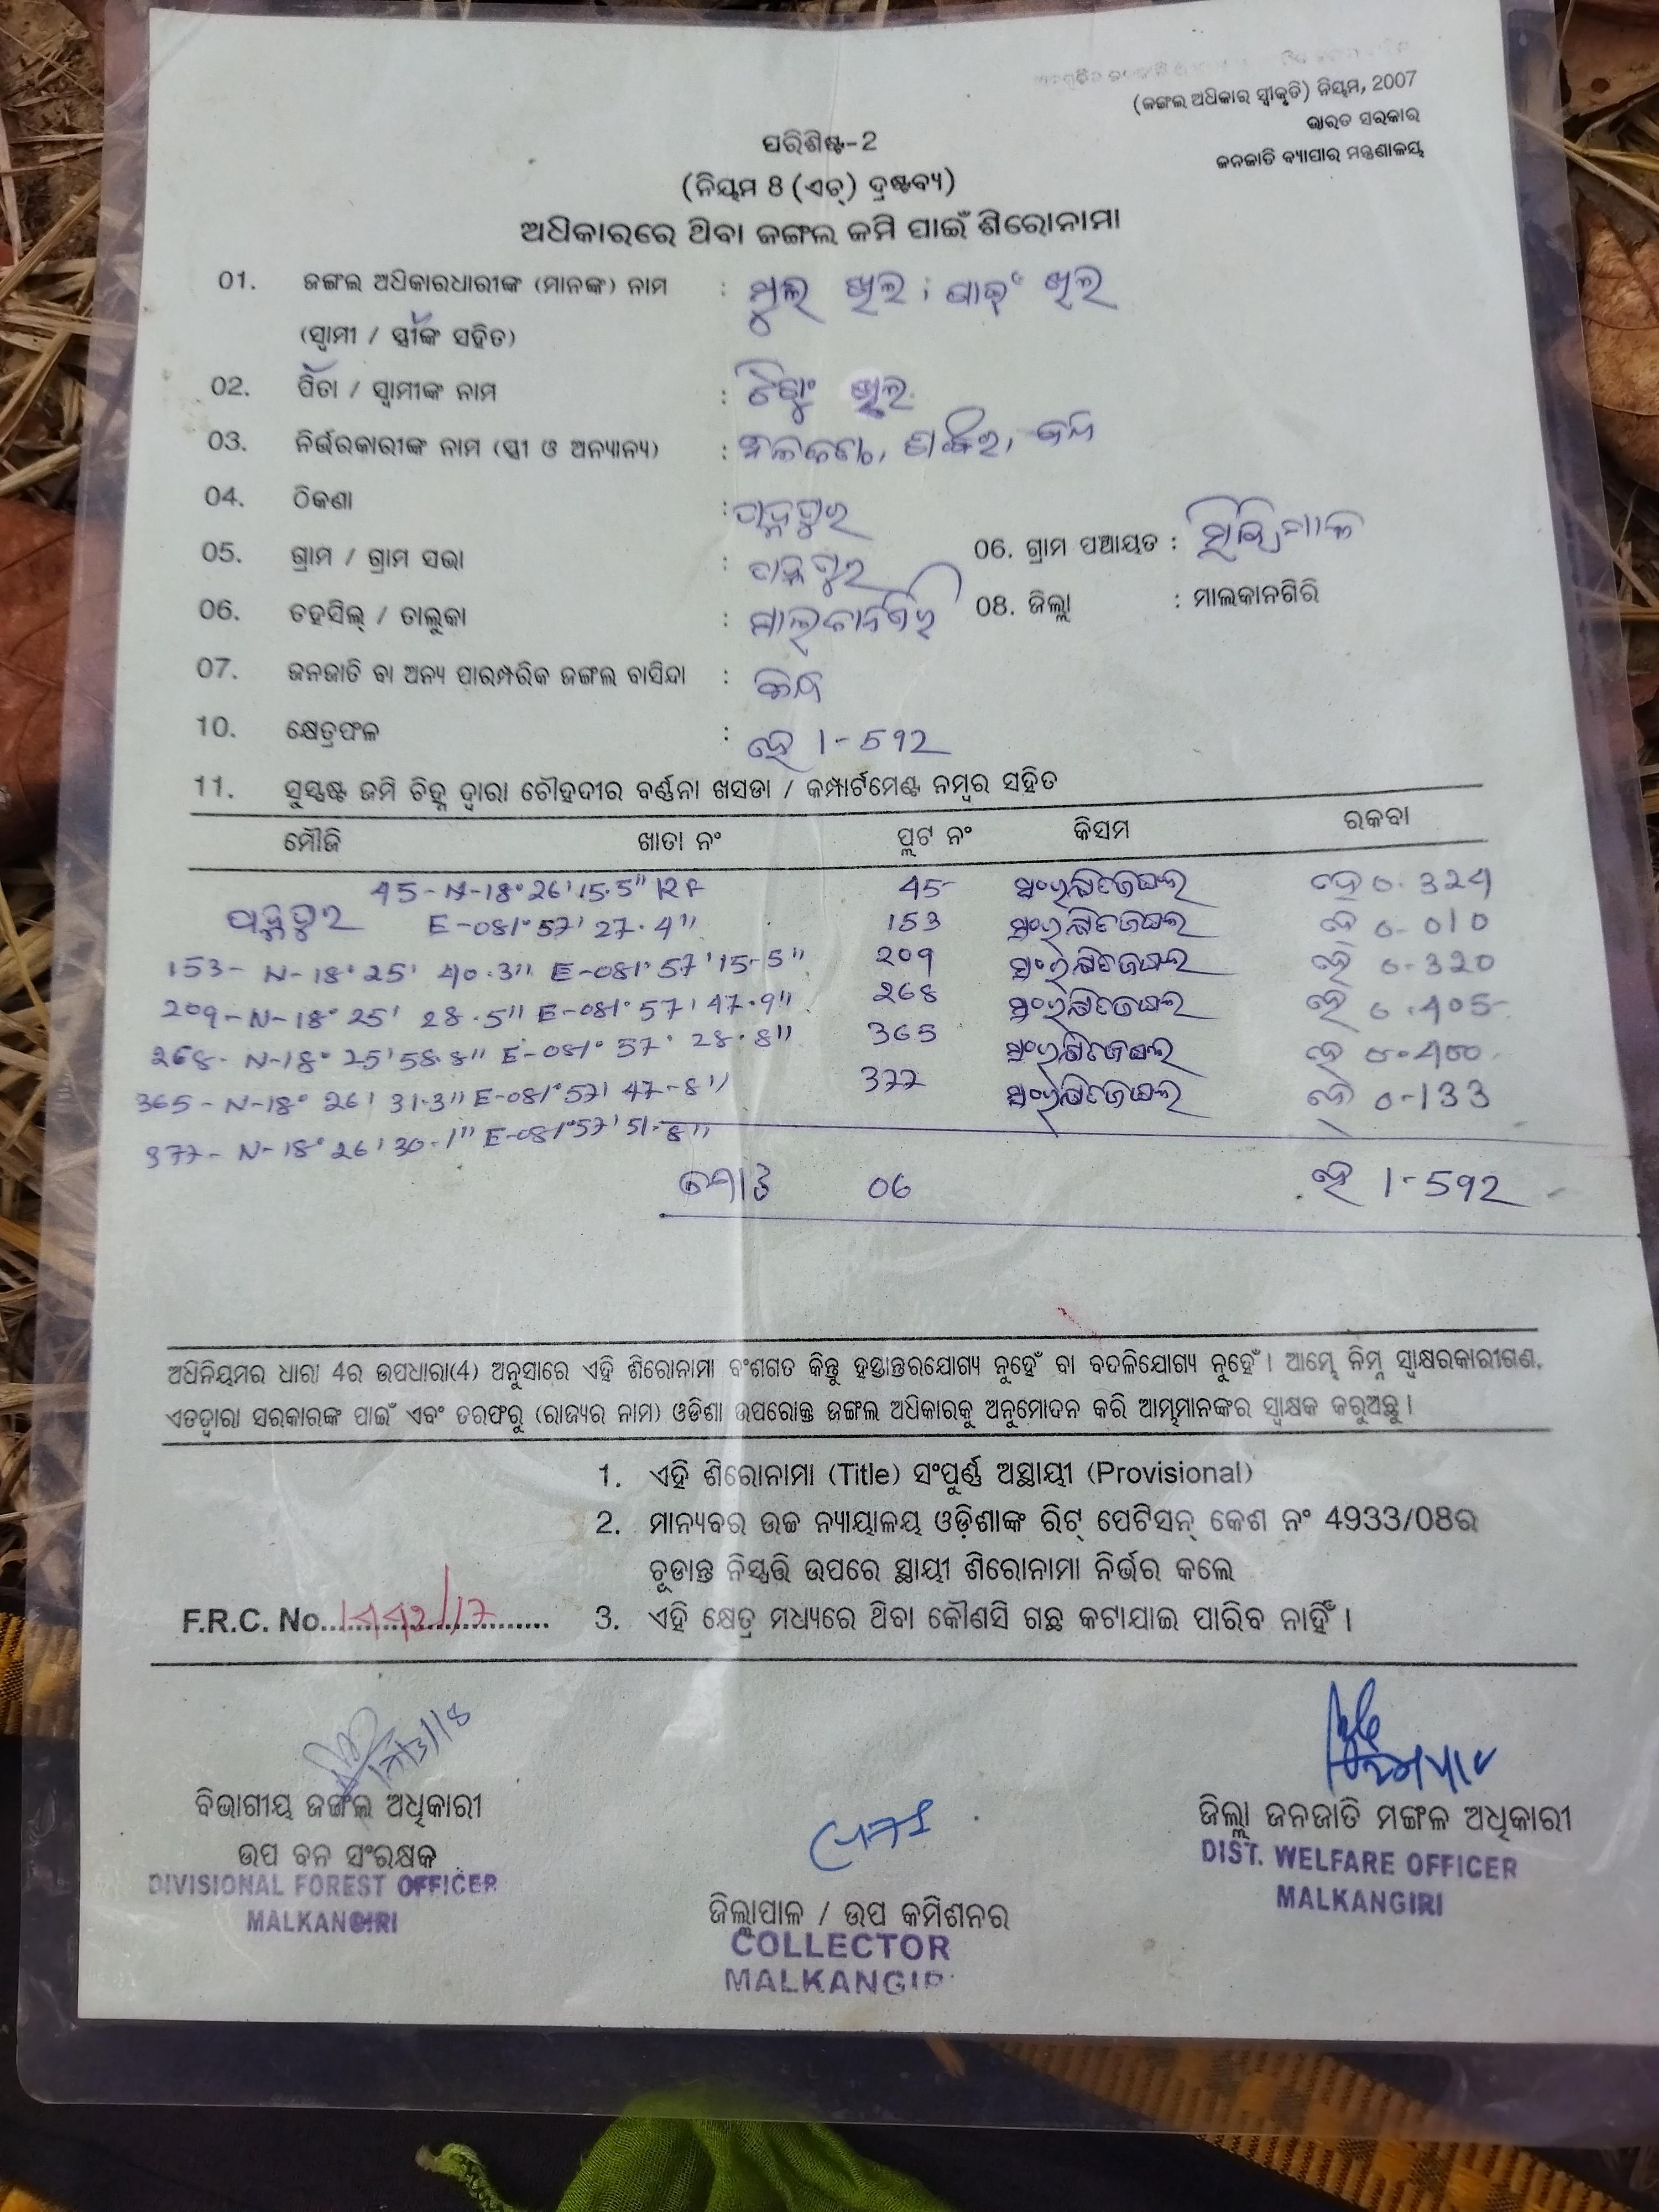 (ଜଙ୍ଗଲ ଅଧିକାର ସ୍ୱୀକୃତି) ନିୟମ, 2007
ଭାରତ ସରକାର
ଜନଜାତି ବ୍ୟାପାର ମନ୍ତ୍ରଣାଳୟ
ପରିଶିଷ୍ଟ-2
(ନିୟମ 8 (ଏଚ୍) ଦ୍ରଷ୍ଟବ୍ୟ)
ଅଧିକାରରେ ଥିବା ଜଙ୍ଗଲ ଜମି ପାଇଁ ଶିରୋନାମା
01. ଜଙ୍ଗଲ ଅଧିକାରଧାରୀଙ୍କ (ମାନଙ୍କ) ନାମ :
(ସ୍ୱାମୀ / ସ୍ତ୍ରୀଙ୍କ ସହିତ)
02. ପିତା / ସ୍ୱାମୀଙ୍କ ନାମ :
03. ନିର୍ଭରକାରୀଙ୍କ ନାମ (ସ୍ତ୍ରୀ ଓ ଅନ୍ୟାନ୍ୟ) :
04. ଠିକଣା :
05. ଗ୍ରାମ / ଗ୍ରାମ ସଭା : 06. ଗ୍ରାମ ପଞ୍ଚାୟତ :
06. ତହସିଲ୍ / ତାଲୁକା : ମାଲ୍କାନଗିରି 08. ଜିଲ୍ଲା : ମାଲକାନଗିରି
07. ଜନଜାତି ବା ଅନ୍ୟ ପାରମ୍ପରିକ ଜଙ୍ଗଲ ବାସିନ୍ଦା :
10. କ୍ଷେତ୍ରଫଳ : ହେ 1-592
11. ସୁସ୍ପଷ୍ଟ ଜମି ଚିହ୍ନ ଦ୍ୱାରା ଚୌହଦୀର ବର୍ଣ୍ଣନା ଖସଡା / କମ୍ପାର୍ଟମେଣ୍ଟ ନମ୍ବର ସହିତ
ମୌଜି ଖାତା ନଂ ପ୍ଲଟ ନଂ କିସମ ରକବା
45-N-18°26'15.5" RF 45 ସଂରକ୍ଷିତଜଙ୍ଗଲ ହେ 0.324
E-081°57'27.4" 153 ସଂରକ୍ଷିତଜଙ୍ଗଲ ହେ 0-010
153- N-18°25' 40.3" E-081°57'15-5" 209 ସଂରକ୍ଷିତଜଙ୍ଗଲ ହେ 0-320
209-N-18°25' 28.5" E-081°57'47.9" 268 ସଂରକ୍ଷିତଜଙ୍ଗଲ ହେ 0.405
268- N-18°25'58.8" E-081°57' 28.8" 365 ସଂରକ୍ଷିତଜଙ୍ଗଲ ହେ 0.400
365-N-18°26'31.3" E-081°57'47-8" 377 ସଂରକ୍ଷିତଜଙ୍ଗଲ ହେ 0-133
377- N-18°26'30-1" E-081°57'51.8"
ମୋଟ 06 ହେ 1-592
ଅଧିନିୟମର ଧାରା 4ର ଉପଧାରା(4) ଅନୁସାରେ ଏହି ଶିରୋନାମା ବଂଶଗତ କିନ୍ତୁ ହସ୍ତାନ୍ତରଯୋଗ୍ୟ ନୁହେଁ ବା ବଦଳିଯୋଗ୍ୟ ନୁହେଁ। ଆମ୍ଭେ ନିମ୍ନ ସ୍ୱାକ୍ଷରକାରୀଗଣ,
ଏତଦ୍ଦ୍ୱାରା ସରକାରଙ୍କ ପାଇଁ ଏବଂ ତରଫରୁ (ରାଜ୍ୟର ନାମ) ଓଡିଶା ଉପରୋକ୍ତ ଜଙ୍ଗଲ ଅଧିକାରକୁ ଅନୁମୋଦନ କରି ଆମ୍ଭମାନଙ୍କର ସ୍ୱାକ୍ଷକ କରୁଅଛୁ।
1. ଏହି ଶିରୋନାମା (Title) ସଂପୁର୍ଣ୍ଣ ଅସ୍ଥାୟୀ (Provisional)
2. ମାନ୍ୟବର ଉଚ୍ଚ ନ୍ୟାୟାଳୟ ଓଡ଼ିଶାଙ୍କ ରିଟ୍ ପେଟିସନ୍ କେଶ ନଂ 4933/08ର
ଚୂଡାନ୍ତ ନିସ୍ପତ୍ତି ଉପରେ ସ୍ଥାୟୀ ଶିରୋନାମା ନିର୍ଭର କଲେ
F.R.C. No. 3. ଏହି କ୍ଷେତ୍ର ମଧ୍ୟରେ ଥିବା କୌଣସି ଗଛ କଟାଯାଇ ପାରିବ ନାହିଁ।
ବିଭାଗୀୟ ଜଙ୍ଗଲ ଅଧିକାରୀ
ଉପ ବନ ସଂରକ୍ଷକ
DIVISIONAL FOREST OFFICER
MALKANGIRI
ଜିଲ୍ଲାପାଳ / ଉପ କମିଶନର
COLLECTOR
MALKANGIR
ଜିଲ୍ଲା ଜନଜାତି ମଙ୍ଗଳ ଅଧିକାରୀ
DIST. WELFARE OFFICER
MALKANGIRI